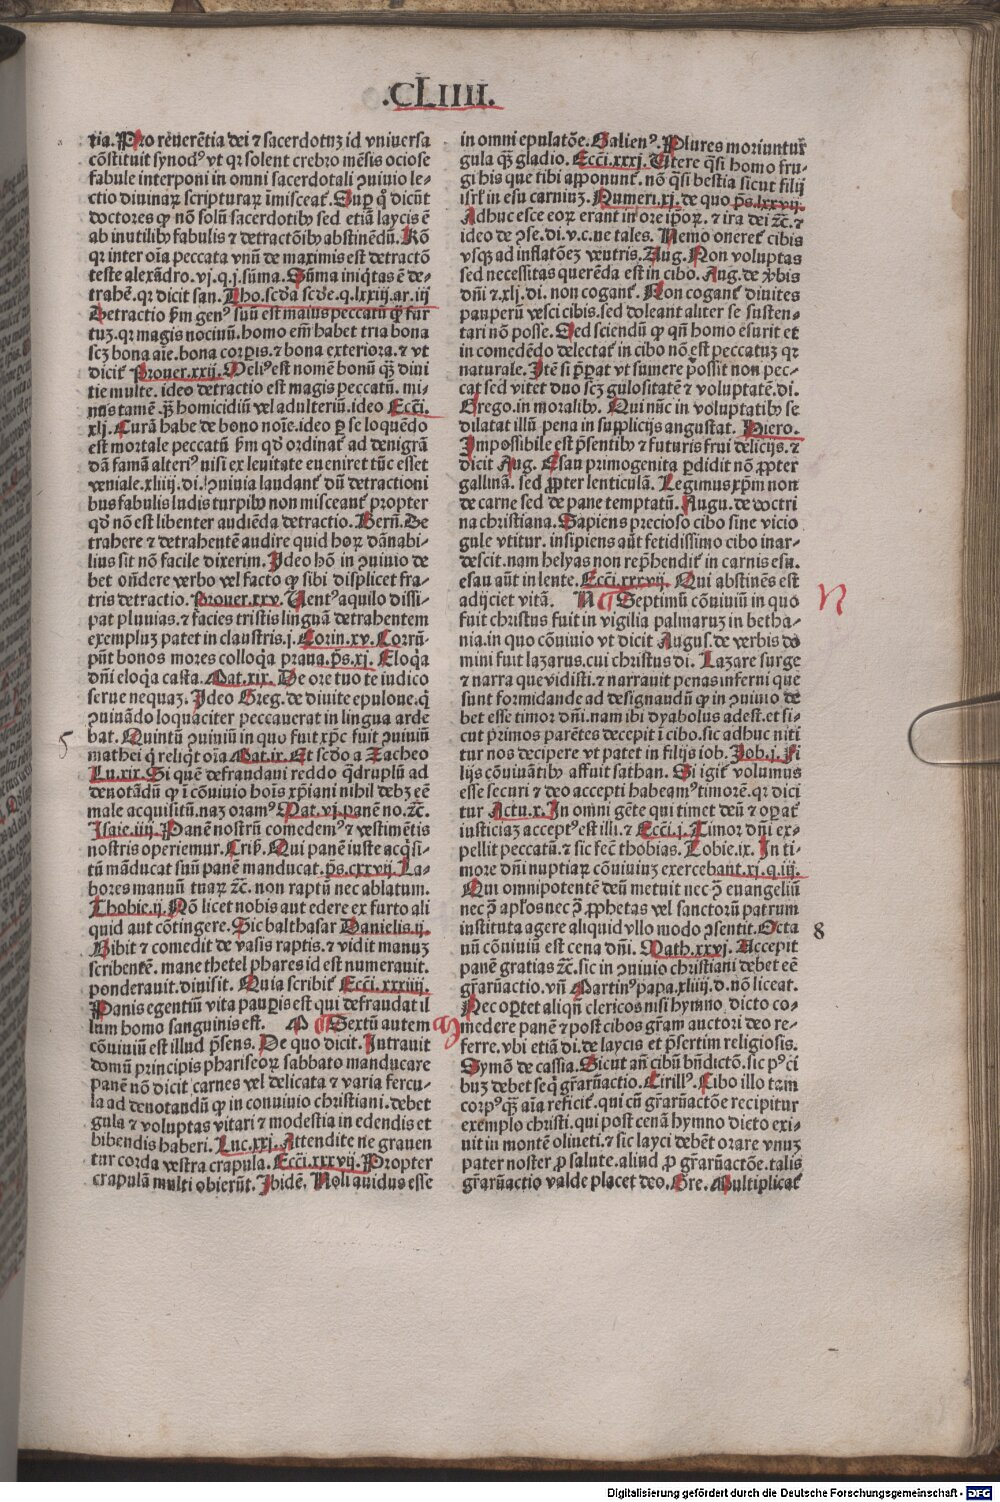 .CLIIII.
tia. Pro reuerētia dei ⁊ sacerdotuꝫ id vniuersa
cōstituit synodꝰ vt qꝛ solent crebro mēsis ociose
fabule interponi in omni sacerdotali ꝯuiuio le-
ctio diuinaꝝ scripturaꝝ īmisceat᷑. Suꝑ q̊ dicūt
doctores ꝙ nō solū sacerdotibꝰ sed etiā laycis ē
ab inutilibꝰ fabulis ⁊ detractōibꝰ abstinēdū. Rō
qꝛ inter oīa peccata vnū de maximis est detractō
teste alexādro. vj. q. j. sūma. Sūma iniq̇tas ē de-
trahe̅. qꝛ dicit san. Tho. scd̓a scd̓e. q. lxxiij. ar. iij
Detractio ẜm genꝰ suū est maius peccatū q̄ fur
tuꝫ. qꝛ magis nociuū. homo em̄ habet tria bona
scꝫ bona aīe. bona corꝑis. ⁊ bona exteriora. ⁊ vt
dicit᷑ Prouer. xxij. Meliꝰ est nomē bonū qꝫ̄ diui
tie multe. ideo detractio est magis peccatū. mi-
nus tamē. qꝫ̄ homicidiū vel adulteriū. ideo Ecci.
xlj. Curā habe de bono noīe. ideo ꝑ se loquēdo
est mortale peccatū ẜm qd̓ ordinat᷑ ad denigrā
dā famā alteriꝰ nisi ex leuitate eueniret tūc esset
veniale. xliiij. di. ꝯuiuia laudant᷑ dū detractioni
bus fabulis ludis turpibꝰ non misceant᷑ propter
qd̓ nō est libenter audiēda detractio. Bern̄. De
trahere ⁊ detrahentē audire quid hoꝝ dānabi-
lius sit nō facile dixerim. Ideo hō in ꝯuiuio de
bet on̄dere verbo vel facto ꝙ sibi displicet fra-
tris detractio. Prouer. xxv. Uentꝰ aquilo dissi-
pat pluuias. ⁊ facies tristis linguā detrahentem
exempluꝫ patet in claustris. j. Corin. xv. Corrū-
pūt bonos mores colloq̇a praua. p̄s. xj. Eloq̇a
dn̄i eloq̇a casta. Mat. xix. De ore tuo te iudico
serue nequaꝫ. Ideo Greg. de diuite epulone. q̇
ꝯuiuādo loquaciter peccauerat in lingua arde
bat. Quintū ꝯuiuiū in quo fuit xp̄c fuit ꝯuiuiū
mathei q̇ reliq̇t oīa Mat. ix. Et scd̓o a Zacheo
Lu. xix. Si quē defraudaui reddo q̇druplū ad
denotādū ꝙ ī cōuiuio hoīs xp̄iani nihil debꝫ eē
male acquisitū. naꝫ oramꝰ Mat. vj. panē no. ⁊c̄.
Isaie. iiij. Panē nostrū comedemꝰ ⁊ vestimētis
nostris operiemur. Criẜ. Qui panē iuste acq̇si-
tū māducat suū panē manducat. p̄s. cxxvij. La-
bores manuū tuaꝝ ⁊c̄. non raptū nec ablatum.
Thobie. ij. Nō licet nobis aut edere ex furto ali
quid aut cōtingere. Sic balthasar Danielis. ij.
Bibit ⁊ comedit de vasis raptis. ⁊ vidit manuꝫ
scribentē. mane thetel phares id est numerauit.
ponderauit. diuisit. Quia scribit᷑ Ecci. xxxiiij.
Panis egentiū vita pauꝑis est qui defraudat il
lum homo sanguinis est. M Sextū autem
cōuiuiū est illud p̄sens. De quo dicit. Intrauit
domū principis phariseoꝝ sabbato manducare
panē nō dicit carnes vel delicata ⁊ varia fercu-
la ad denotandū ꝙ in conuiuio christiani. debet
gula ⁊ voluptas vitari ⁊ modestia in edendis et
bibendis haberi. Luc. xxj. Attendite ne grauen
tur corda vestra crapula. Ecci. xxxvij. Propter
crapulā multi obierūt. Ibidē. Noli auidus esse
5
in omni epulatōe. Galienꝰ. Plures moriuntur
gula qꝫ̄ gladio. Ecci. xxxj. Utere q̄si homo fru-
gi his que tibi apponunt᷑. nō q̄si bestia sicut filij
isrl̓ in esu carniuꝫ. Numeri. xj. de quo p̄s. lxxvij.
Adhuc esce eoꝝ erant in ore ip̄oꝝ. ⁊ ira dei ⁊c̄. ⁊
ideo de ꝯse. di. v. c. ne tales. Nemo oneret᷑ cibis
vsqꝫ ad inflatōeꝫ ventris. Aug. Non voluptas
sed necessitas querēda est in cibo. Aug. de v̓bis
dn̄i ⁊ xlj. di. non cogant᷑. Non cogant᷑ diuites
pauperū vesci cibis. sed doleant aliter se susten-
tari nō posse. Sed sciendū ꝙ qn̄ homo esurit et
in comedēdo delectat᷑ in cibo nō est peccatuꝫ qꝛ
naturale. Itē si p̄ꝑat vt sumere possit non pec-
cat sed vitet duo scꝫ gulositatē ⁊ voluptatē. di.
Grego. in moralibꝰ. Qui nūc in voluptatibꝰ se
dilatat illū pena in supplicijs angustat. Hiero.
Impossibile est p̄sentibꝰ ⁊ futuris frui delicijs. ⁊
dicit Aug. Esau primogenita ꝑdidit nō ꝓpter
gallinā. sed ꝓpter lenticulā. Legimus xp̄m non
de carne sed de pane temptatū. Augu. de doctri
na christiana. Sapiens precioso cibo sine vicio
gule vtitur. insipiens aūt fetidissimo cibo inar-
descit. nam helyas non rep̄hendit᷑ in carnis esu.
esau aūt in lente. Ecci. xxxvij. Qui abstinēs est
adijciet vitā. N Septimū cōuiuiū in quo
fuit christus fuit in vigilia palmaruꝫ in betha-
nia. in quo cōuiuio vt dicit Augus. de verbis do
mini fuit lazarus. cui christus di. Lazare surge
⁊ narra que vidisti. ⁊ narrauit penas inferni que
sunt formidande ad designandū ꝙ in ꝯuiuio de
bet esse timor dn̄i. nam ibi dyabolus adest. et si-
cut primos parētes decepit ī cibo. sic adhuc niti
tur nos decipere vt patet in filijs iob. Job. j. Fi
lijs cōuiuātibꝰ affuit sathan. Si igit᷑ volumus
esse securi ⁊ deo accepti habeamꝰ timorē. qꝛ dici
tur Actu. x. In omni gēte qui timet deū ⁊ oꝑat᷑
iusticiaꝫ acceptꝰ est illi. ⁊ Ecci. j. Timor dn̄i ex-
pellit peccatū. ⁊ sic fec̄ thobias. Tobie. ix. In ti-
more dn̄i nuptiaꝝ cōuiuiuꝫ exercebant. xj. q. iij.
Qui omnipotentē deū metuit nec ꝯ̄ euangeliū
nec ꝯ̄ apl̓os nec ꝯ̄ ꝓphetas vel sanctorū patrum
instituta agere aliquid vllo modo ꝯsentit. Octa
uū cōuiuiū est cena dn̄i. Math. xxvj. Accepit
panē gratias ⁊c̄. sic in ꝯuiuio christiani debet eē
gr̄aꝝactio. vn̄ Martinꝰ papa. xliiij. d. nō liceat.
Nec oꝑtet aliqn̄ clericos nisi hymno dicto co-
medere panē ⁊ post cibos gr̄am auctori deo re-
ferre. vbi etiā di. de laycis et p̄sertim religiosis.
Symō de cassia. Sicut an̄ cibū bn̄dictō. sic pꝰ ci
buꝫ debet seq̇ gr̄aꝝactio. Cirillꝰ. Cibo illo tam
corpꝰ qꝫ̄ aīa reficit᷑. qui cū gr̄aꝝactōe recipitur
exemplo christi. qui post cenā hymno dicto exi-
uit in montē oliueti. ⁊ sic layci debēt orare vnuꝫ
pater noster ꝓ salute. aliud ꝓ gr̄aꝝactōe. talis
gr̄aꝝactio valde placet deo. Gre. Multiplicat᷑
N
8
Digitalisierung gefördert durch die Deutsche Forschungsgemeinschaft - DFG